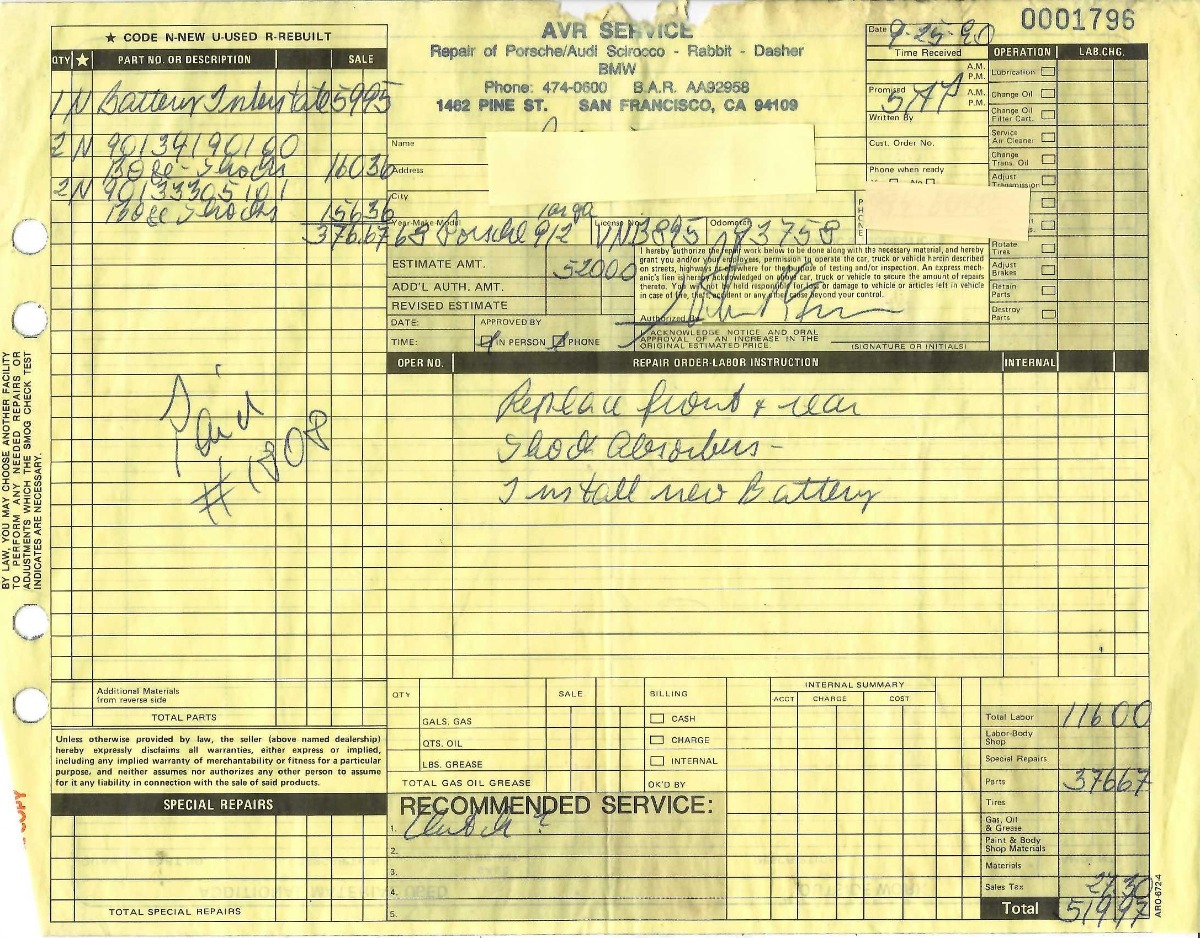 ★ CODE N-NEW U-USED R-REBUILT
QTY ★ PART NO. OR DESCRIPTION SALE
1 N Battery Interstate 5995
2 N 90134190100
Boge-Shocks 16036
2 N 90133305101
Boge Shocks 15636
37667
AVR SERVICE
Repair of Porsche/Audi Scirocco - Rabbit - Dasher
BMW
Phone: 474-0600 B.A.R. AA92958
1462 PINE ST. SAN FRANCISCO, CA 94109
0001796
Date 9-25-90
Time Received
A.M.
P.M.
Promised 5 A.M.
P.M.
Written By
Cust. Order No.
Phone when ready
Name
Address
City
PHONE
OPERATION LAB.CHG.
Lubrication
Change Oil
Change Oil
Filter Cart.
Service
Air Cleaner
Change
Trans. Oil
Adjust
Transmission
Rotate
Tires
Adjust
Brakes
Retain
Parts
Destroy
Parts
Year-Make-Model License No. Odometer
Targa
68 Porsche 912 VNB895 93758
ESTIMATE AMT. 52000
ADD'L AUTH. AMT.
REVISED ESTIMATE
DATE: APPROVED BY
TIME: IN PERSON PHONE
I hereby authorize the repair work below to be done along with the necessary material, and hereby
grant you and/or your employees, permission to operate the car, truck or vehicle herein described
on streets, highways or elsewhere for the purpose of testing and/or inspection. An express mech-
anic's lien is hereby acknowledged on above car, truck or vehicle to secure the amount of repairs
thereto. You will not be held responsible for loss or damage to vehicle or articles left in vehicle
in case of fire, theft, accident or any other cause beyond your control.
Authorized By
I ACKNOWLEDGE NOTICE AND ORAL
APPROVAL OF AN INCREASE IN THE
ORIGINAL ESTIMATED PRICE.
(SIGNATURE OR INITIALS)
OPER NO. REPAIR ORDER-LABOR INSTRUCTION INTERNAL
Replace front & rear
Shock Absorbers-
Install new Battery
Paid
#1808
BY LAW, YOU MAY CHOOSE ANOTHER FACILITY
TO PERFORM ANY NEEDED REPAIRS OR
ADJUSTMENTS WHICH THE SMOG CHECK TEST
INDICATES ARE NECESSARY.
Additional Materials
from reverse side
TOTAL PARTS
Unless otherwise provided by law, the seller (above named dealership)
hereby expressly disclaims all warranties, either express or implied,
including any implied warranty of merchantability or fitness for a particular
purpose, and neither assumes nor authorizes any other person to assume
for it any liability in connection with the sale of said products.
SPECIAL REPAIRS
TOTAL SPECIAL REPAIRS
COPY
QTY SALE
GALS. GAS
QTS. OIL
LBS. GREASE
TOTAL GAS OIL GREASE
BILLING
CASH
CHARGE
INTERNAL
OK'D BY
INTERNAL SUMMARY
ACCT CHARGE COST
RECOMMENDED SERVICE:
1. Clutch ?
2.
3.
4.
5.
Total Labor 11600
Labor-Body
Shop
Special Repairs
Parts 37667
Tires
Gas, Oil
& Grease
Paint & Body
Shop Materials
Materials
Sales Tax 27.30
Total 51997
ARO-672-4